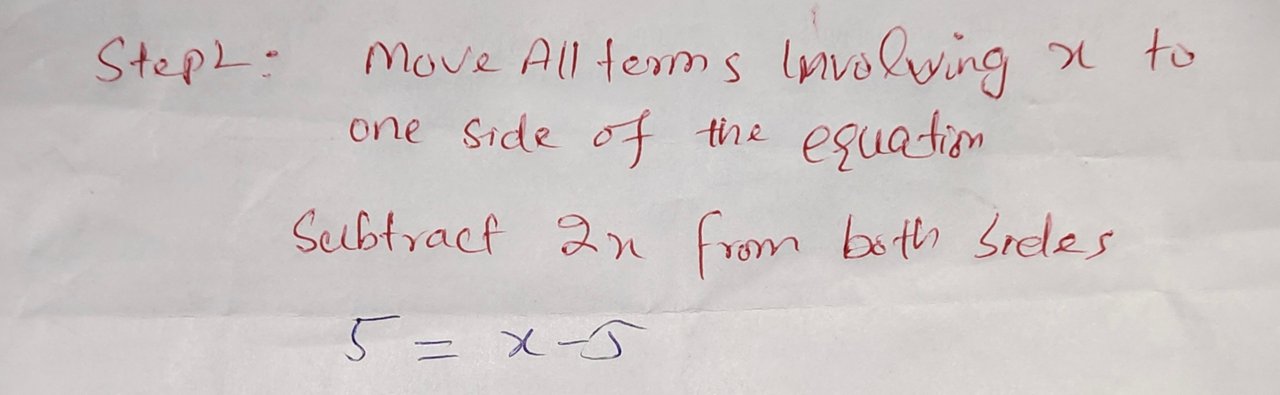 Step2: Move All terms Involving x to
one side of the equation
Subtract 2x from both sides
5 = x-5